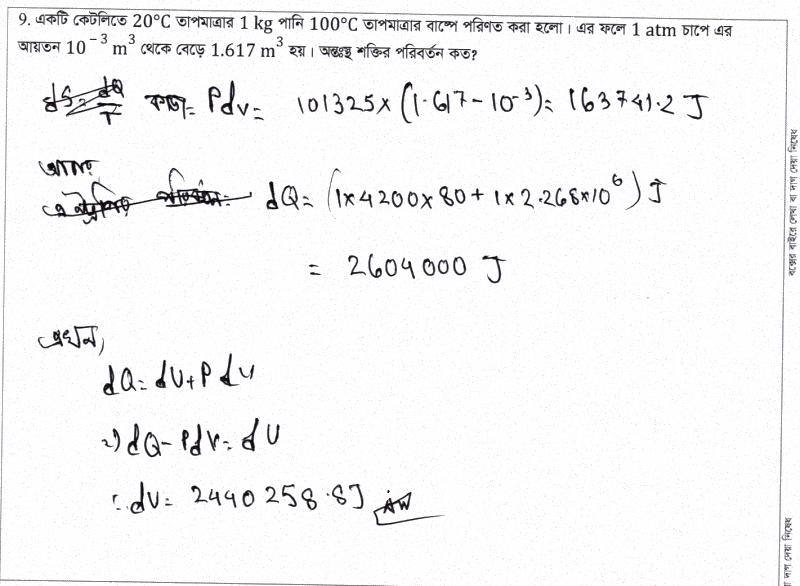 9. একটি কেটলিতে 20°C তাপমাত্রার 1 kg পানি 100°C তাপমাত্রার বাষ্পে পরিণত করা হলো। এর ফলে 1 atm চাপে এর
আয়তন 10⁻³ m³ থেকে বেড়ে 1.617 m³ হয়। অন্তঃস্থ শক্তির পরিবর্তন কত?
dS = dQ/T কাজ = Pdv = 101325 × (1.617 - 10⁻³) = 163741.2 J
dQ = (1×4200×80 + 1×2.268×10⁶) J
= 2604000 J
এখন,
dQ = dU + P dV
⇒ dQ - PdV = dU
∴ dU = 2440258.8 J
বক্সের বাইরে লেখা বা দাগ দেয়া নিষেধ
া দাগ দেয়া নিষেধ